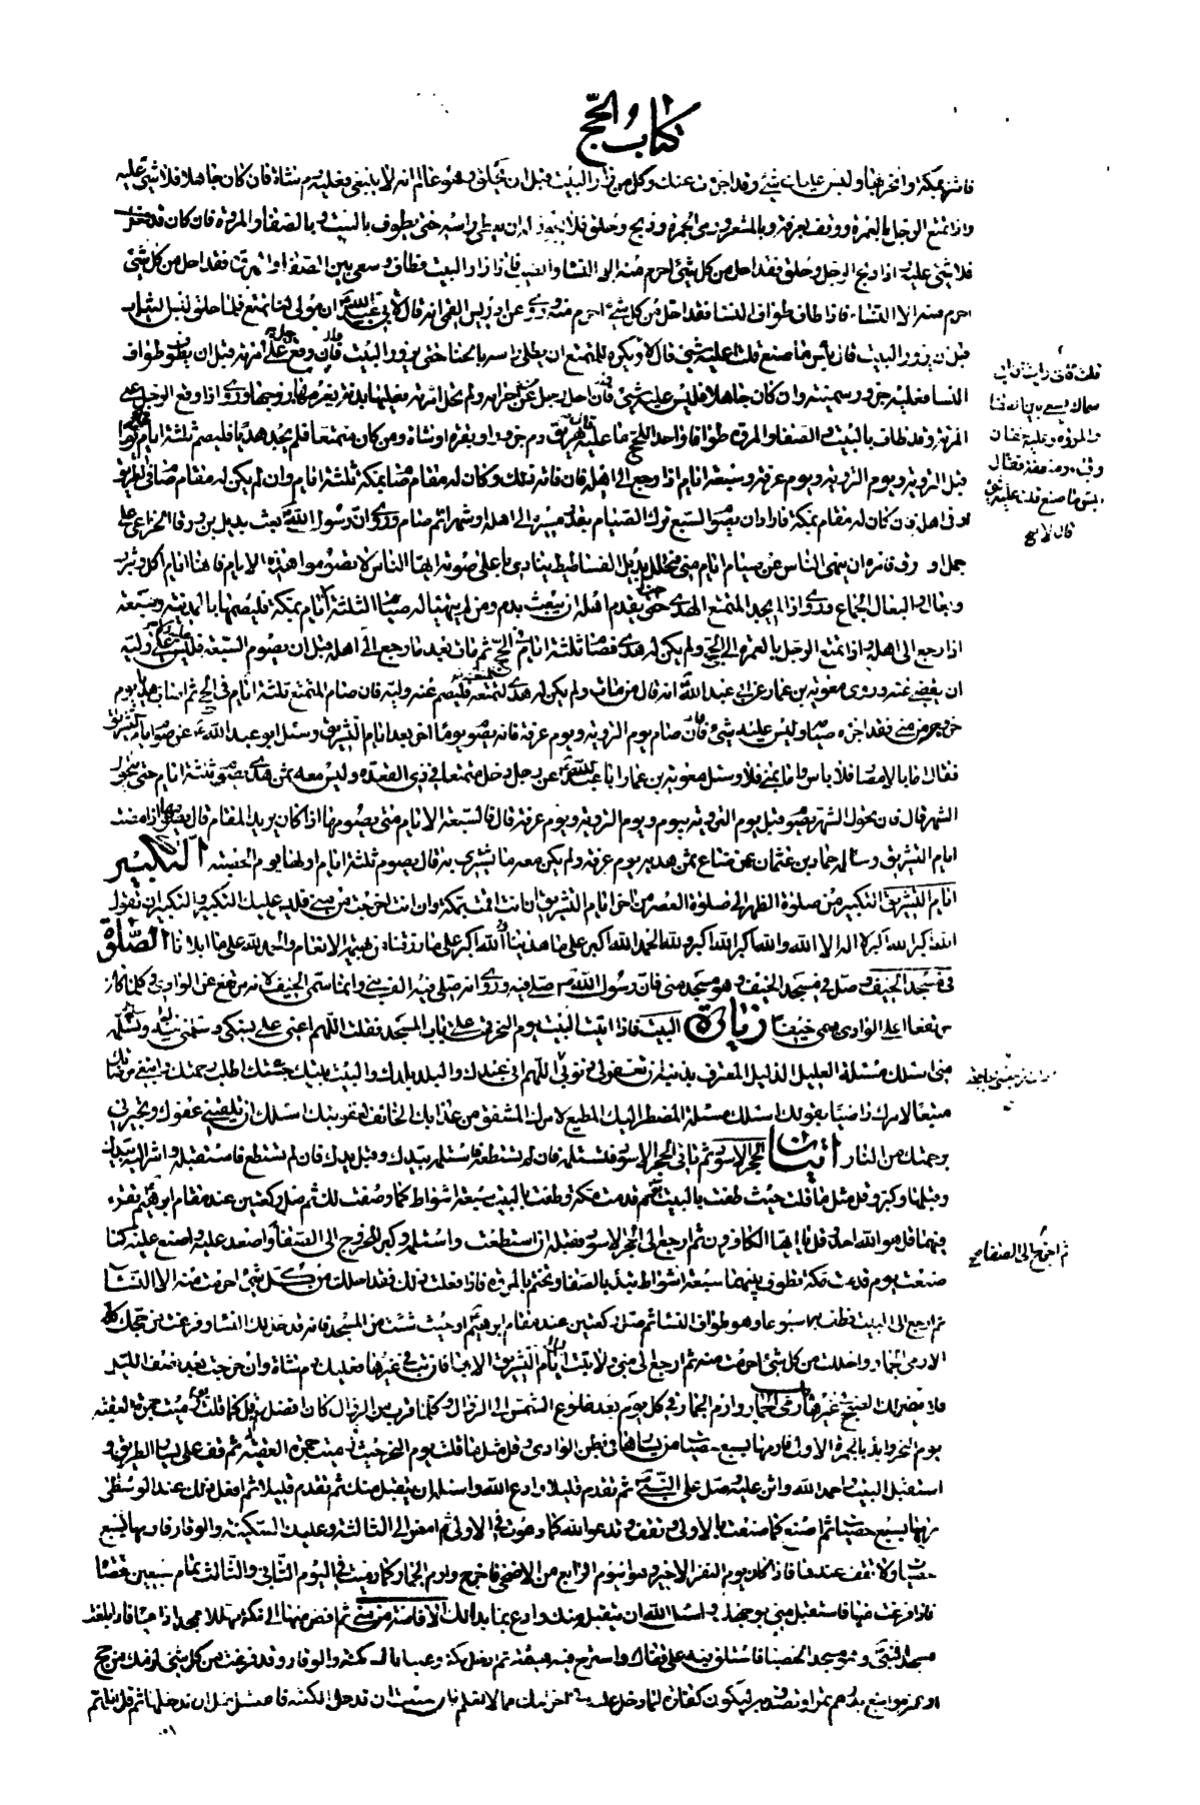 كتاب الحج
فاشتر بمكة وانحرها وليس عليك شئ وقد اجزت عنك وكل من زار البيت قبل ان يحلق وهو عالم انه لا ينبغي فعليه دم شاة فان كان جاهلا فلا شئ عليه
واذا تمتع الرجل بالعمرة ووقف بعرفة وبالمشعر ورمى الجمرة وذبح وحلق فلا يجوز له ان يغطي راسه حتى يطوف بالبيت وبالصفا والمروة فان كان قد فعل
فلا شئ عليه اذا ذبح الرجل وحلق فقد احل من كل شئ احرم منه الا النساء والطيب فاذا زار البيت فطاف وسعى بين الصفا والمروة فقد احل من كل شئ
احرم منه الا النساء فاذا طاف طواف النساء فقد احل من كل شئ احرم منه وروي عن ادريس القمي انه قال لابي عبد الله ان مولى لنا تمتع فلما حلق لبس الثياب
قبل ان يزور البيت فقال بئس ما صنع قلت اعليه شئ قال لا ويكره للمتمتع ان يطلي راسه بالحنا حتى يزور البيت فان وقع على امراته قبل ان يطوف طواف
النساء فعليه جزور سمينة وان كان جاهلا فليس عليه شئ فان احل رجل من احرامه ولم تحل امراته فوقع عليها فعليها بدنة يغرمها زوجها وروي اذا وقع الرجل على
امراته وقد طاف بالبيت والصفا والمروة طوافا واحدا للحج ما عليه قال يهريق دم جزور او بقرة او شاة ومن كان متمتعا فلم يجد هديا فليصم ثلثة ايام يوما
قبل التروية ويوم التروية ويوم عرفة وسبعة ايام اذا رجع الى اهله فان فاته ذلك وكان له مقام صام بمكة ثلثة ايام وان لم يكن له مقام صام في الطريق
او في اهله فان كان له مقام بمكة فاراد ان يصوم السبع ترك الصيام بقدر مسيره الى اهله او شهرا ثم صام وروي ان رسول الله بعث بديل بن ورقا الخزاعي على
جمل اورق فامره ان ينهى الناس عن صيام ايام منى فتخلل بديل الفساطيط ينادي باعلى صوته ايها الناس لا تصوموا هذه الايام فانها ايام اكل وشرب
وبعال والبعال الجماع وروي اذا لم يجد المتمتع الهدي حتى يقدم اهله ان يبعث بدم ومن لم يتهيا له صيام الثلثة ايام بمكة فليصمها بالمدينة وسبعة
اذا رجع الى اهله واذا تمتع الرجل بالعمرة الى الحج ولم يكن له هدي فصام ثلثة ايام في الحج ثم مات بعد ما رجع الى اهله قبل ان يصوم السبعة فليس على وليه
ان يقضي عنه وروى معوية بن عمار عن ابي عبد الله انه قال من مات ولم يكن له هدي لمتعته فليصم عنه وليه فان صام المتمتع ثلثة ايام في الحج ثم اصاب هديا يوم
خروجه من منى فقد اجزاه صيامه وليس عليه شئ فان صام يوم التروية ويوم عرفة فانه يصوم يوما اخر بعد ايام التشريق وسئل ابو عبد الله عن صوم ايام التشريق
فقال اما بالامصار فلا باس واما بمنى فلا وسئل معوية بن عمار ابا عبد الله عن رجل دخل متمتعا في ذي القعدة وليس معه ثمن هدي يصوم ثلثة ايام حتى يتحول
الشهر قال فان تحول الشهر يصوم قبل يوم التروية بيوم ويوم التروية ويوم عرفة قال قال السبعة الايام متى يصومها اذا كان يريد المقام قال يصومها اذا مضت
ايام التشريق وساله حماد بن عثمان عمن ضاع ثمن هديه يوم عرفة ولم يكن معه ما يشتري به قال يصوم ثلثة ايام اولها يوم الحصبة التكبير
ايام التشريق التكبير من صلوة الظهر الى صلوة العصر من اخر ايام التشريق ان انت اقمت بمكة وان انت خرجت من منى فليس عليك التكبير والتكبير ان تقول
الله اكبر الله اكبر لا اله الا الله والله اكبر الله اكبر ولله الحمد الله اكبر على ما هدينا الله اكبر على ما رزقنا من بهيمة الانعام والحمد لله على ما ابلانا الصلوة
في مسجد الخيف وصل في مسجد الخيف وهو مسجد منى فان رسول الله صلى فيه وروي انه صلى فيه الف نبي وانما سمي الخيف لانه مرتفع عن الوادي وكلما كان
مرتفعا على الوادي سمي خيفا زيارة البيت فاذا اتيت البيت يوم النحر قف على باب المسجد فقلت اللهم اعني على نسكي وسلمني له وسلمه
مني اسئلك مسئلة العليل الذليل المعترف بذنبه ان تغفر لي ذنوبي اللهم اني عبدك والبلد بلدك والبيت بيتك جئتك اطلب رحمتك وابتغي مرضاتك
متبعا لامرك راضيا بقولك اسئلك مسئلة المضطر اليك المطيع لامرك المشفق من عذابك الخائف لعقوبتك اسئلك ان تلقيني عفوك وتجيرني
برحمتك من النار اتيان الحجر الاسود ثم تاتي الحجر الاسود فتستلمه فان لم تستطع فاستلمه بيدك وقبل يدك فان لم تستطع فاستقبله واشر اليه بيدك
وقبلها وكبر وقل مثل ما قلت حيث طفت بالبيت يوم قدمت مكة وطفت بالبيت سبعة اشواط كما وصفت لك ثم صل ركعتين عند مقام ابرهيم تقرء
فيهما قل هو الله احد وقل يا ايها الكافرون ثم ارجع الى الحجر الاسود فقبله ان استطعت واستلمه وكبر الخروج الى الصفا واصعد عليه واصنع عليه كما
صنعت يوم قدمت مكة تطوف بينهما سبعة اشواط تبدء بالصفا وتختم بالمروة فاذا فعلت ذلك فقد احللت من كل شئ احرمت منه الا النساء
ثم ارجع الى البيت فطف به اسبوعا وهو طواف النساء ثم صل ركعتين عند مقام ابرهيم او حيث شئت من المسجد فانه قد حل لك النساء وفرغت من حجك كله
الا رمي الجمار واحللت من كل شئ احرمت منه ثم ارجع الى منى ولا تبت ايام التشريق الا بها فان بت في غيرها فعليك دم شاة وان خرجت بعد نصف الليل
فلا يضرك الصبح في غيرها رمي الجمار وارم الجمار في كل يوم بعد طلوع الشمس الى الزوال وكلما قرب من الزوال كان افضل وقل كما قلت يوم رميت جمرة العقبة
يوم النحر وابدء بالجمرة الاولى فارمها بسبع حصيات من يسارها في بطن الوادي وقل مثل ما قلت يوم النحر حيث رميت جمرة العقبة ثم قف على يسار الطريق و
استقبل البيت واحمد الله واثن عليه وصل على النبي ثم تقدم قليلا وادع الله واسئله ان يتقبل منك ثم تقدم قليلا ثم افعل ذلك عند الوسطى
ترميها بسبع حصيات ثم اصنع كما صنعت بالاولى وتقف وتدعو الله كما دعوت في الاولى ثم امض الى الثالثة وعليك السكينة والوقار فارمها بسبع
حصيات ولا تقف عندها فاذا كان يوم النفر الاخير وهو اليوم الرابع من الاضحى فاخرج وارم الجمار كما رميت في اليوم الثاني والثالث تمام سبعين حصاة
فاذا فرغت منها فاستقبل منى بوجهك واسئل الله ان يتقبل منك وادع بما بدا لك الافاضة من منى ثم افض منها الى مكة مهللا ممجدا داعيا فاذا بلغت
مسجد النبي وهو مسجد الحصبا فاستلق فيه على قفاك واسترح فيه هنيئة ثم تدخل مكة وعليك السكينة والوقار وقد فرغت من كل شئ لزمك من حج
او عمرة وابتع بدرهم تمرا وتصدق به ليكون كفارة لما دخل عليك في احرامك مما لا تعلم فان شئت ان تدخل الكعبة فاغتسل قبل ان تدخلها ثم قل
ثم اخرج الى الصفا